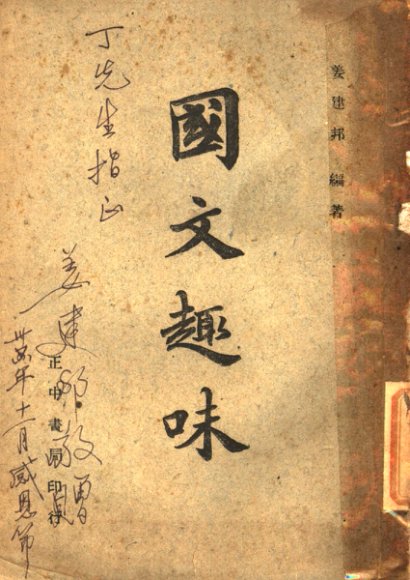 姜建邦 編著
國文趣味
正中書局印行
丁先生指正
姜建邦敬贈
卅五年十一月感恩節